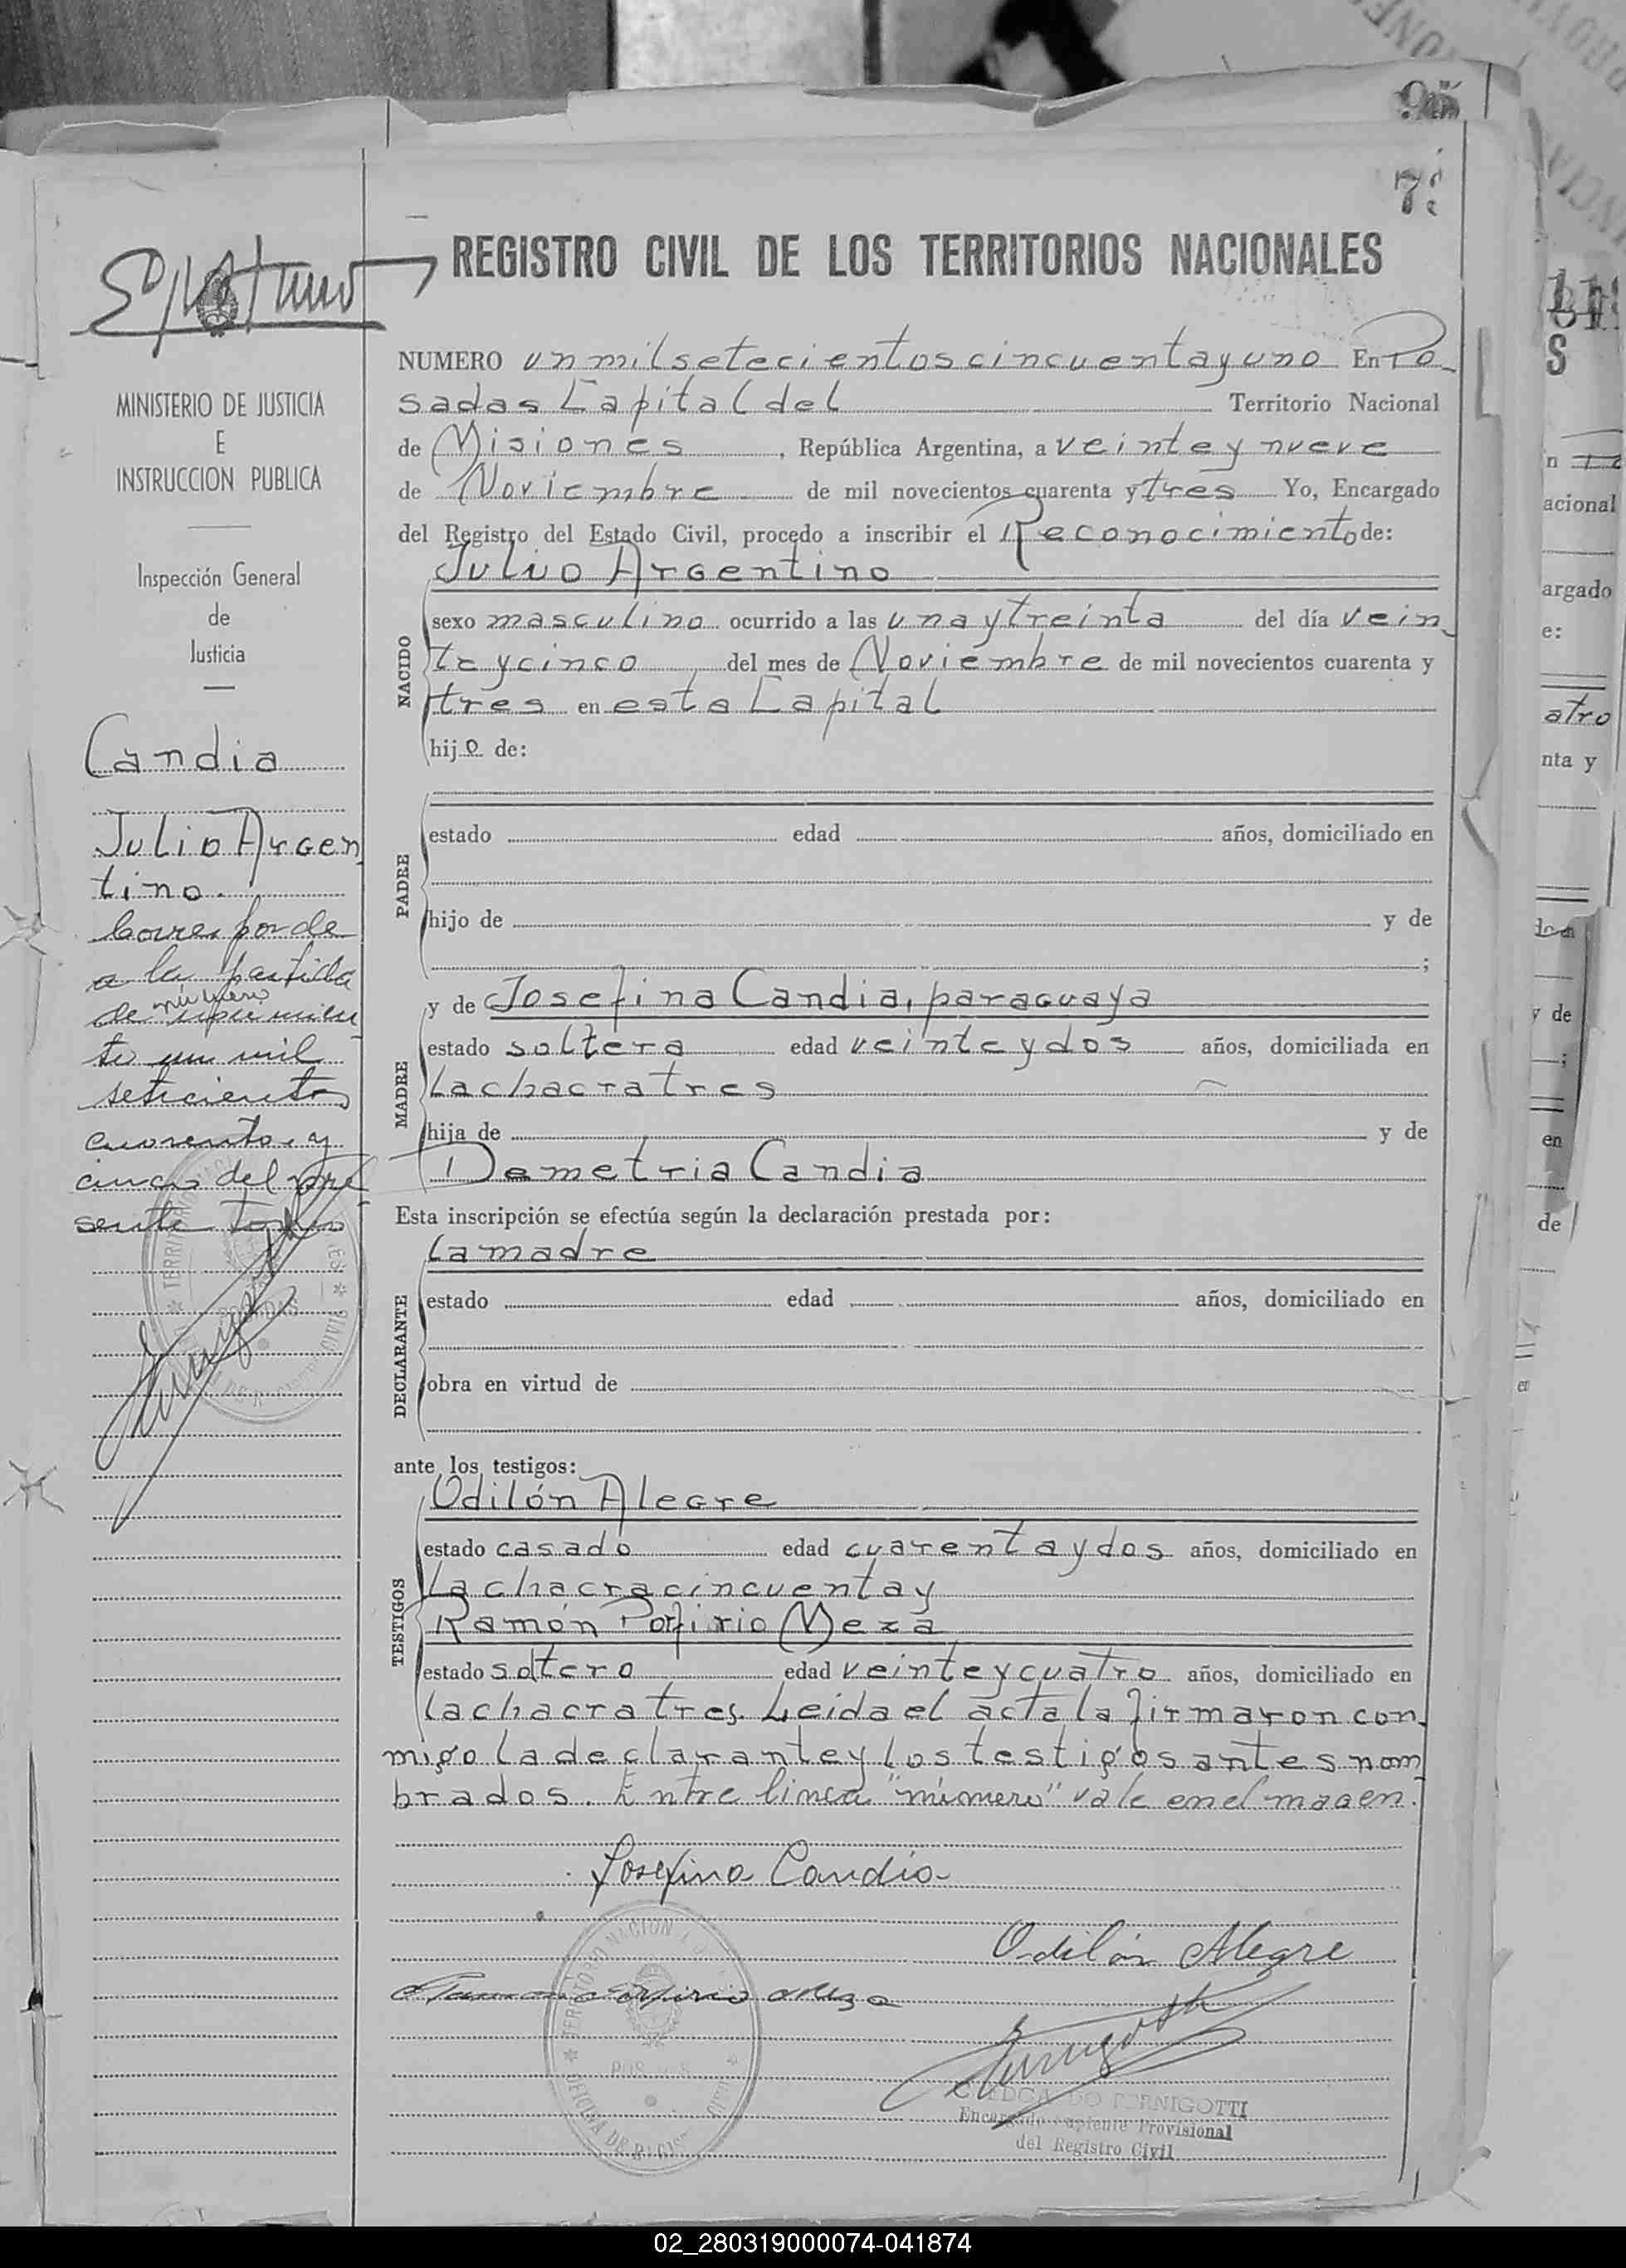 REGISTRO CIVIL DE LOS TERRITORIOS NACIONALES
MINISTERIO DE JUSTICIA
E
INSTRUCCION PUBLICA
Inspección General
de
Justicia
Candia
Julio Argen
tino.
Corresponde
a la partida
número
de
to un mil
setecientos
cuarenta y
cinco del pre
sente Tomo
NUMERO un mil setecientos cincuenta y uno En Po
sadas Capital del Territorio Nacional
de Misiones, República Argentina, a veinte y nueve
de Noviembre de mil novecientos cuarenta y tres Yo, Encargado
del Registro del Estado Civil, procedo a inscribir el Reconocimiento de:
Julio Argentino
NACIDO
sexo masculino ocurrido a las una y treinta del día vein
te y cinco del mes de Noviembre de mil novecientos cuarenta y
tres en esta Capital
hijo de:
PADRE
estado edad años, domiciliado en
hijo de y de
;
y de Josefina Candia, paraguaya
MADRE
estado soltera edad veinte y dos años, domiciliada en
la chacra tres
hija de y de
Demetria Candia
Esta inscripción se efectúa según la declaración prestada por:
la madre
DECLARANTE
estado edad años, domiciliado en
obra en virtud de
ante los testigos:
Odilón Alegre
TESTIGOS
estado casado edad cuarenta y dos años, domiciliado en
la chacra cincuenta y
Ramón Porfirio Meza
estado soltero edad veinte y cuatro años, domiciliado en
la chacra tres. Leida el acta la firmaron con
migo la declarante y los testigos antes nom
brados. Entre linea "número" vale en el magen.
Josefina Candia
Odilón Alegre
Ramon Porfirio Meza
PERNIGOTTI
Encargado Suplente Provisional
del Registro Civil
02_280319000074-041874